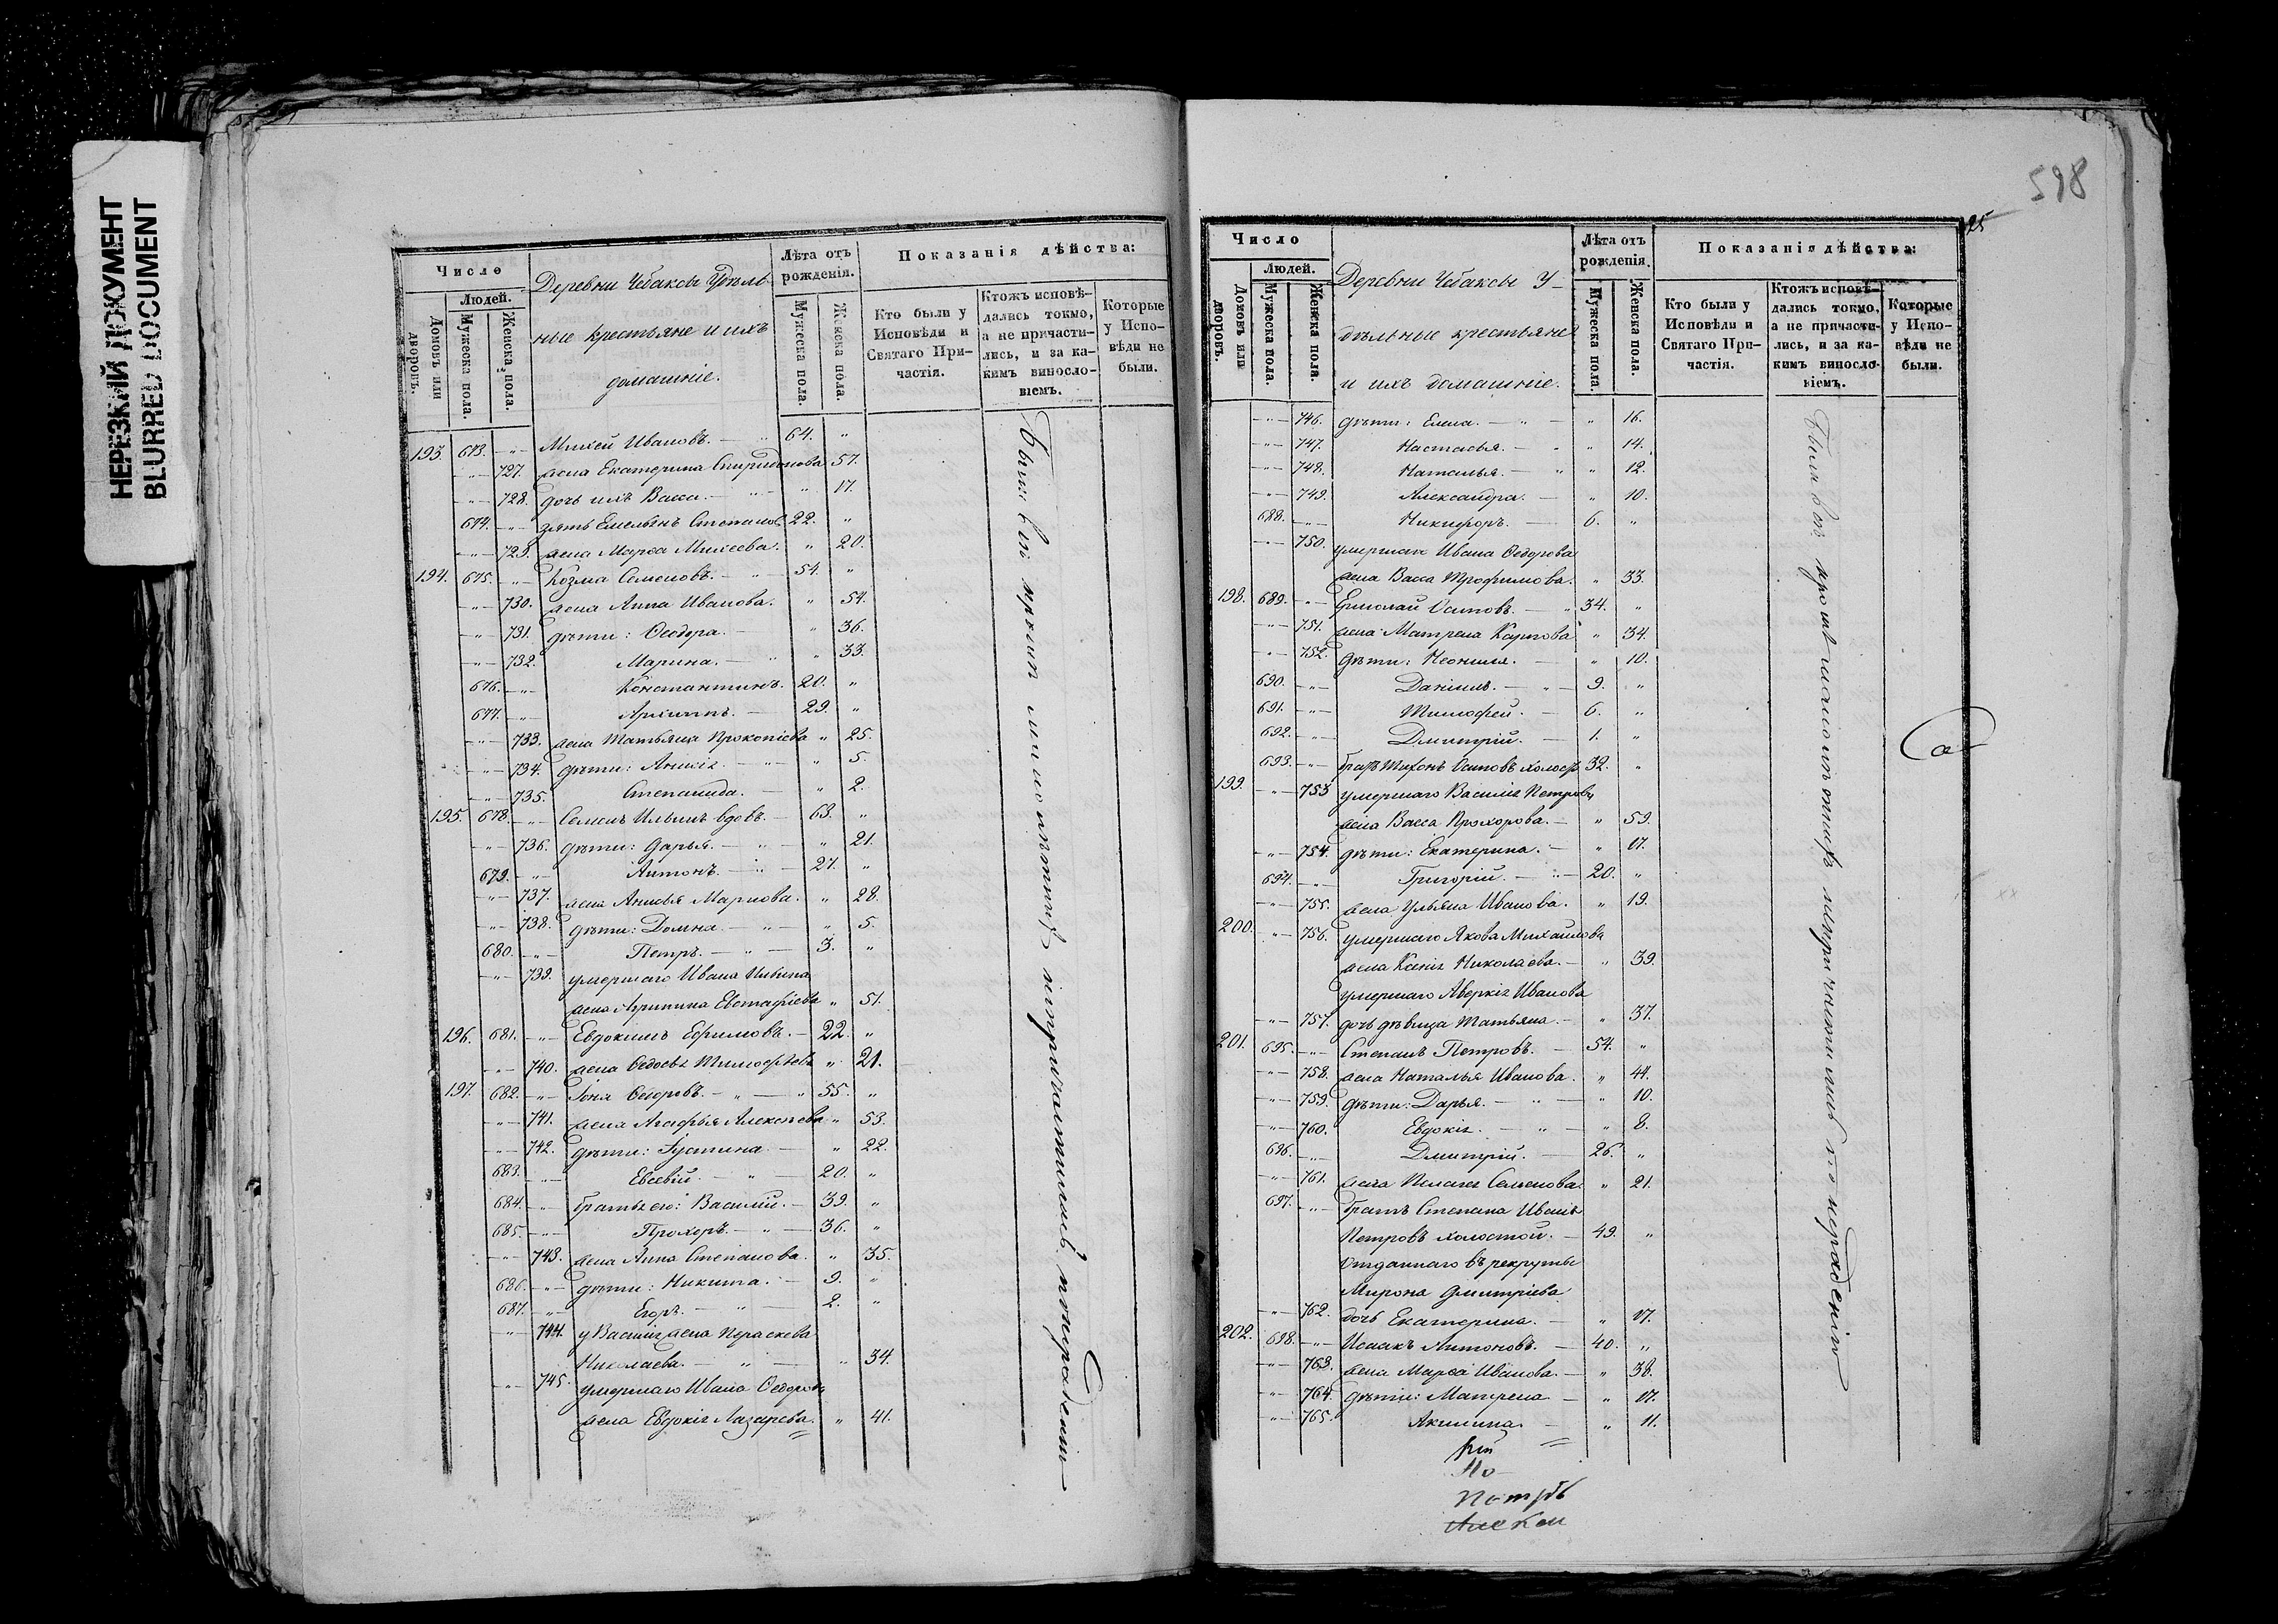 НЕРЕЗКИЙ ДОКУМЕНТ
BLURRED DOCUMENT
Число
Людей.
Домовъ или дворовъ.
Мужеска пола.
Женска пола.
Деревни Чебаксы Удѣль-
ные крестьяне и ихъ
домашніе.
Лѣта отъ рожденія.
Мужеска пола.
Женска пола.
Показанія дѣйства:
Кто были у Исповѣди и Святаго При-частія.
Ктожъ исповѣ-дались токмо, а не причасти-лись, и за ка-кимъ винослo-віемъ.
Которые у Испо-вѣди не были.
193. 673. -"- Михей Ивановъ. 64. "
-"- 727. жена Екатерина Спиридонова 57.
-"- 728. дочь ихъ Васса. " 17.
674. -"- зять Емельянъ Степановъ 22. "
-"- 729. жена Марѳа Михеева. " 20.
194. 675. -"- Козма Семеновъ. 54. "
-"- 730. жена Анна Иванова. " 54.
-"- 731. дѣти: Ѳеодора. " 36.
-"- 732. Марина. " 33.
676. -"- Константинъ. 20. "
677. -"- Архиппъ. 29. "
-"- 733. жена Татьяна Прокопіева " 25.
-"- 734. дѣти: Анисія. " 5.
-"- 735. Степанида. " 2.
195. 678. -"- Семенъ Ильинъ вдовъ. 63. "
-"- 736. дѣти: Дарья. " 21.
679. -"- Антонъ. 27. "
-"- 737. жена Анисья Маркова. " 28.
-"- 738. дѣти: Домна. " 5.
680. -"- Петръ. 3. "
-"- 739. умершаго Ивана Ильина
жена Агрипина Евстафіева " 51.
196. 681. -"- Евдокимъ Ефимовъ. 22. "
-"- 740. жена Ѳедосья Тимофѣева " 21.
197. 682. -"- Іона Ѳедоровъ. 55. "
-"- 741. жена Агафья Алексѣева " 53.
-"- 742. дѣти: Іустина " 22.
683. -"- Евсевій. 20. "
684. -"- братья его: Василій. 39. "
685. -"- Прохоръ. 36. "
-"- 743. жена Анна Степанова. " 35.
686. -"- дѣти: Никита. 9. "
687. -"- Егоръ. 2. "
-"- 744. у Василія жена Параскева
Николаева. " 34.
-"- 745. умершаго Ивана Ѳедорова
жена Евдокія Лазарева. " 41.
598
25
Число
Людей.
Домовъ или дворовъ.
Мужеска пола.
Женска пола.
Деревни Чебаксы У-
дѣльные крестьяне
и ихъ домашніе.
Лѣта отъ рожденія.
Мужеска пола.
Женска пола.
Показанія дѣйства:
Кто были у Исповѣди и Святаго При-частія.
Ктожъ исповѣ-дались токмо, а не причасти-лись, и за ка-кимъ винослo-віемъ.
Которые у Испо-вѣди не были.
-"- 746. дѣти: Елена. " 16.
-"- 747. Настасья. " 14.
-"- 748. Наталья. " 12.
-"- 749. Александра. " 10.
688. -"- Никифоръ. 6. "
-"- 750. умершаго Ивана Ѳедорова
жена Васса Трофимова. " 33.
198. 689. -"- Ермолай Осиповъ. 34. "
-"- 751. жена Матрена Карпова " 34.
-"- 752. дѣти: Неонила. " 10.
690. -"- Даніилъ. 9. "
691. -"- Тимофей. 6. "
692. -"- Дмитрій. 1. "
693. -"- братъ Тихонъ Осиповъ холост. 32. "
199. -"- 753 умершаго Василія Петрова
жена Васса Прохорова. " 59.
-"- 754. дѣти: Екатерина. " 17.
694. -"- Григорій. 20. "
-"- 755. жена Ульяна Иванова. " 19.
200. -"- 756. умершаго Якова Михайлова
жена Ксенія Николаева. " 39.
умершаго Аверкія Иванова
-"- 757. дочь дѣвица Татьяна. " 37.
201. 695. -"- Степанъ Петровъ. 54. "
-"- 758. жена Наталья Иванова. " 44.
-"- 759. дѣти: Дарья. " 10.
-"- 760. Евдокія. " 8.
696. -"- Дмитрій. 26. "
-"- 761. жена Пелагія Семенова " 21.
697. -"- братъ Степана Иванъ
Петровъ холостой. 49. "
Отданнаго въ рекруты
Мирона Дмитріева
-"- 762. дочь Екатерина. " 17.
202. 698. -"- Исаакъ Антоновъ. 40. "
-"- 763. жена Марѳа Иванова. " 38.
-"- 764. дѣти: Матрена " 17.
-"- 765. Акилина. " 11.
рій
Но
Петръ